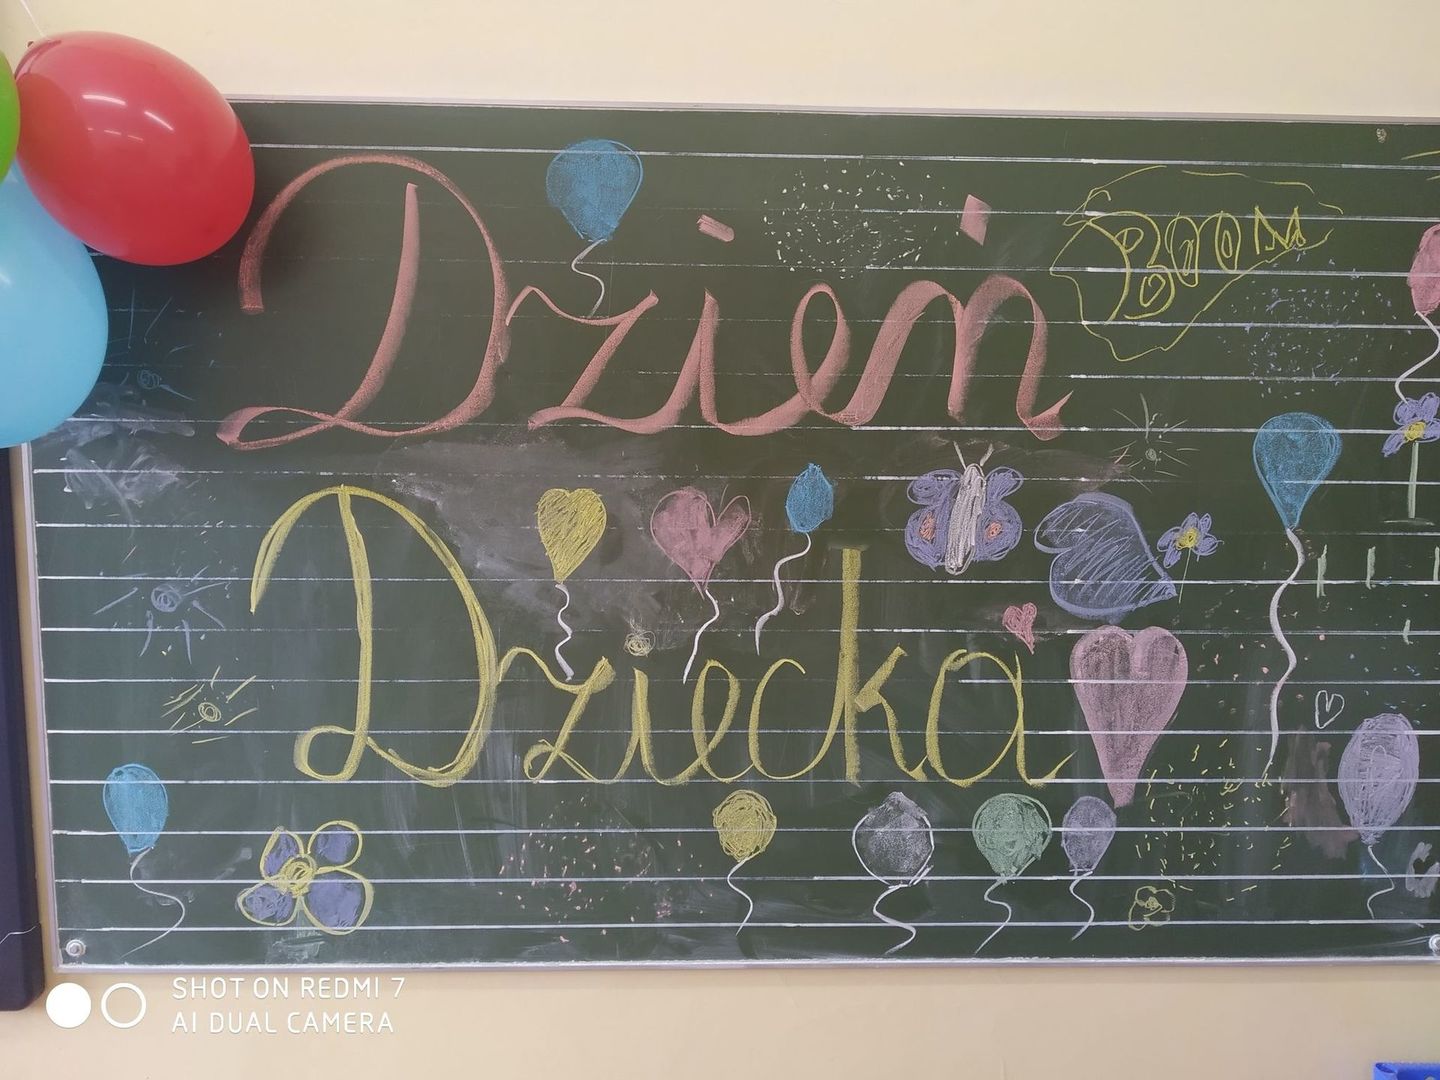 Dzień
BOOM
Dziecka
SHOT ON REDMI 7
AI DUAL CAMERA